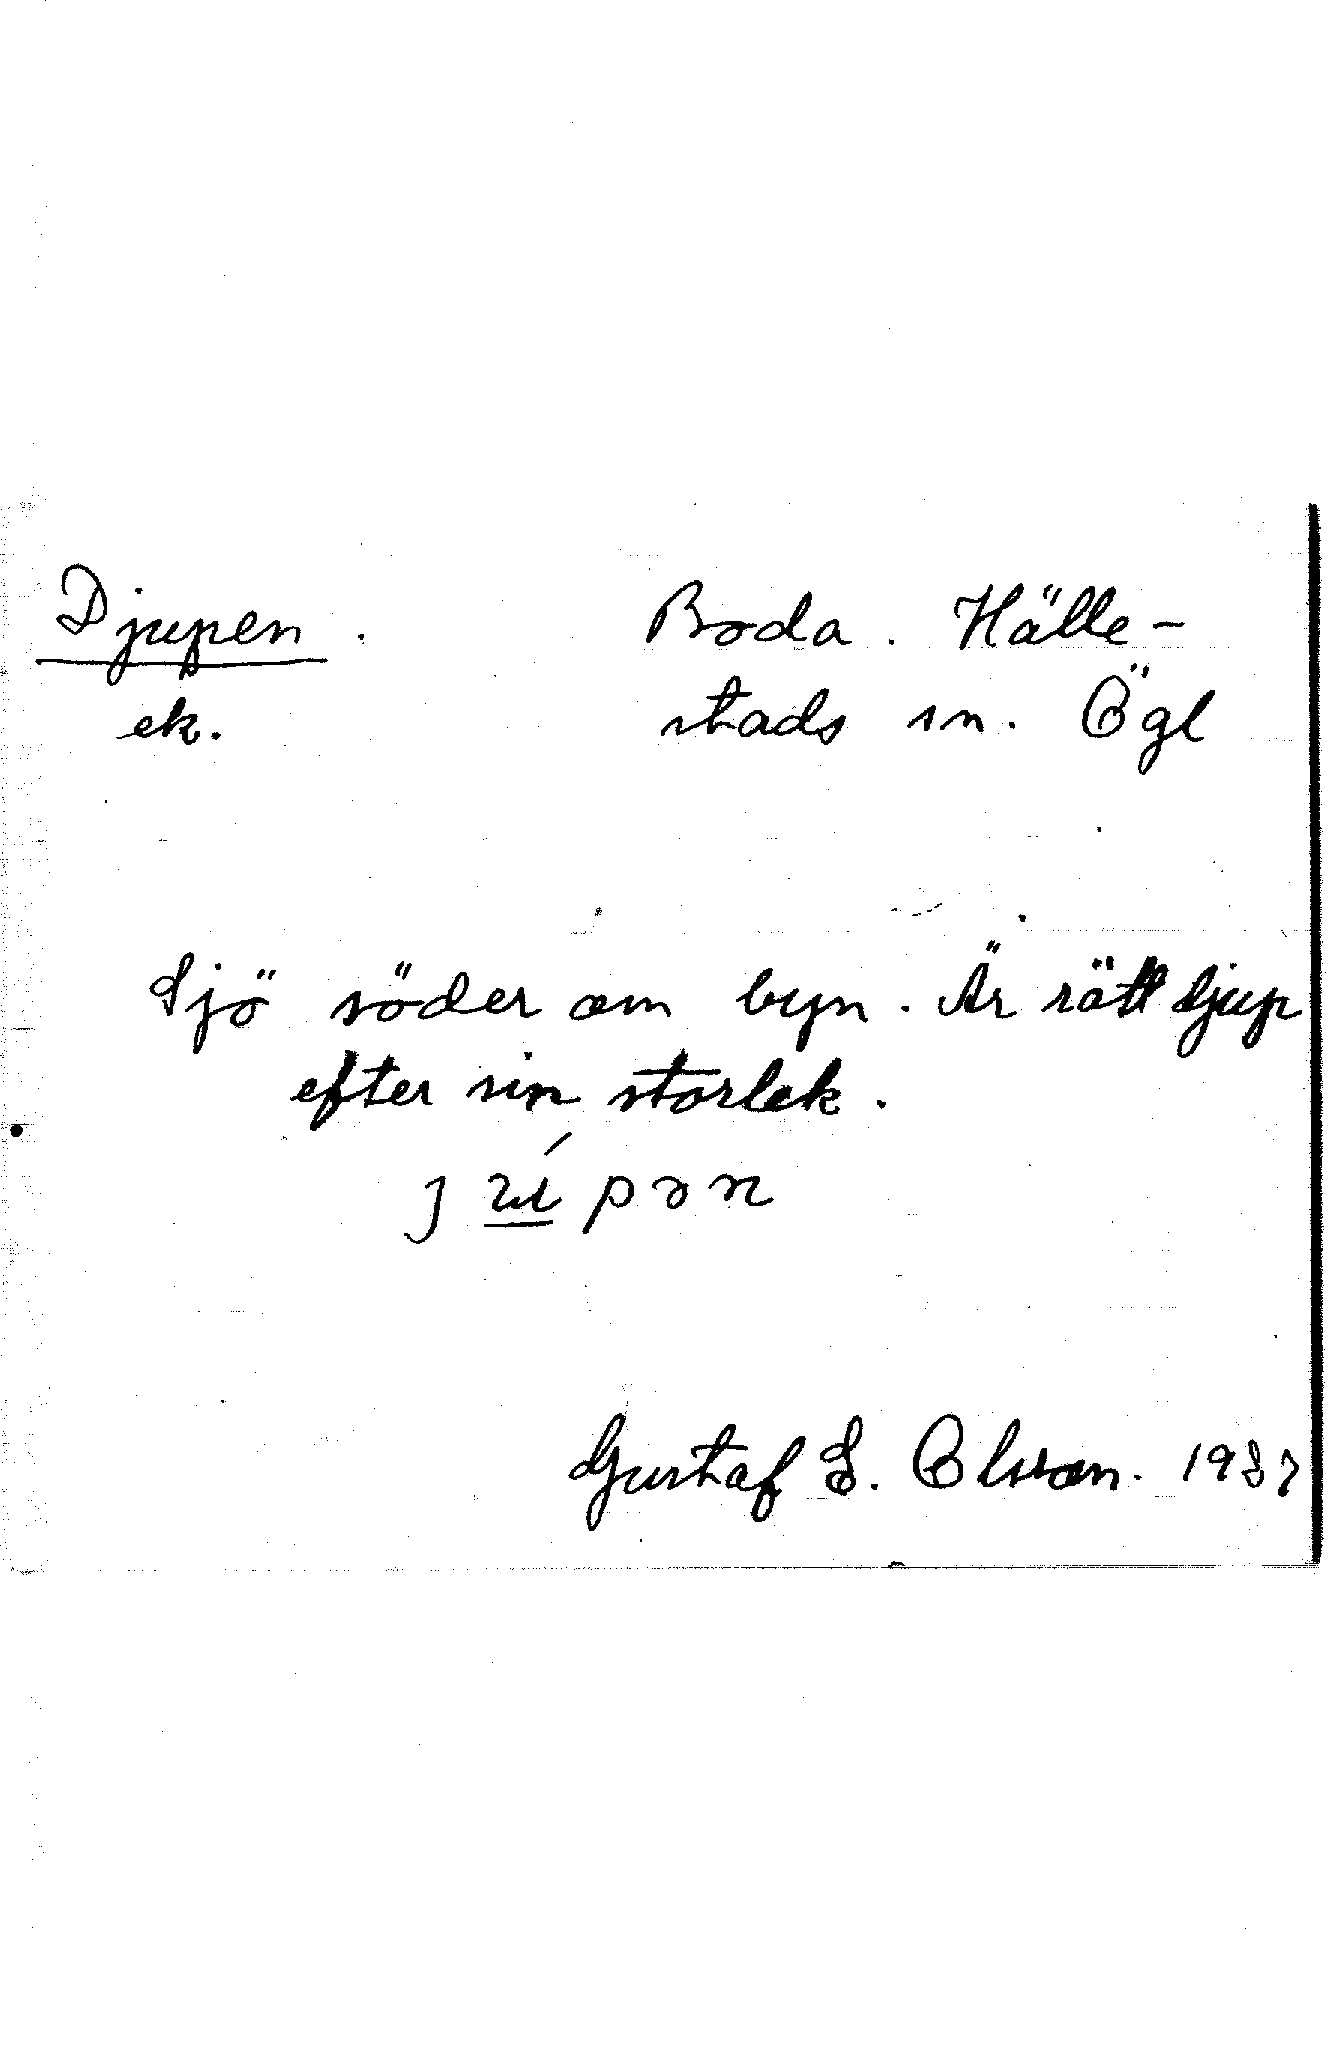 Djupen. Boda. Hälle-
ek. stads sn. Ögl
Sjö söder om byn. Är rätt djup
efter sin storlek.
Gustaf E. Olsson. 1937